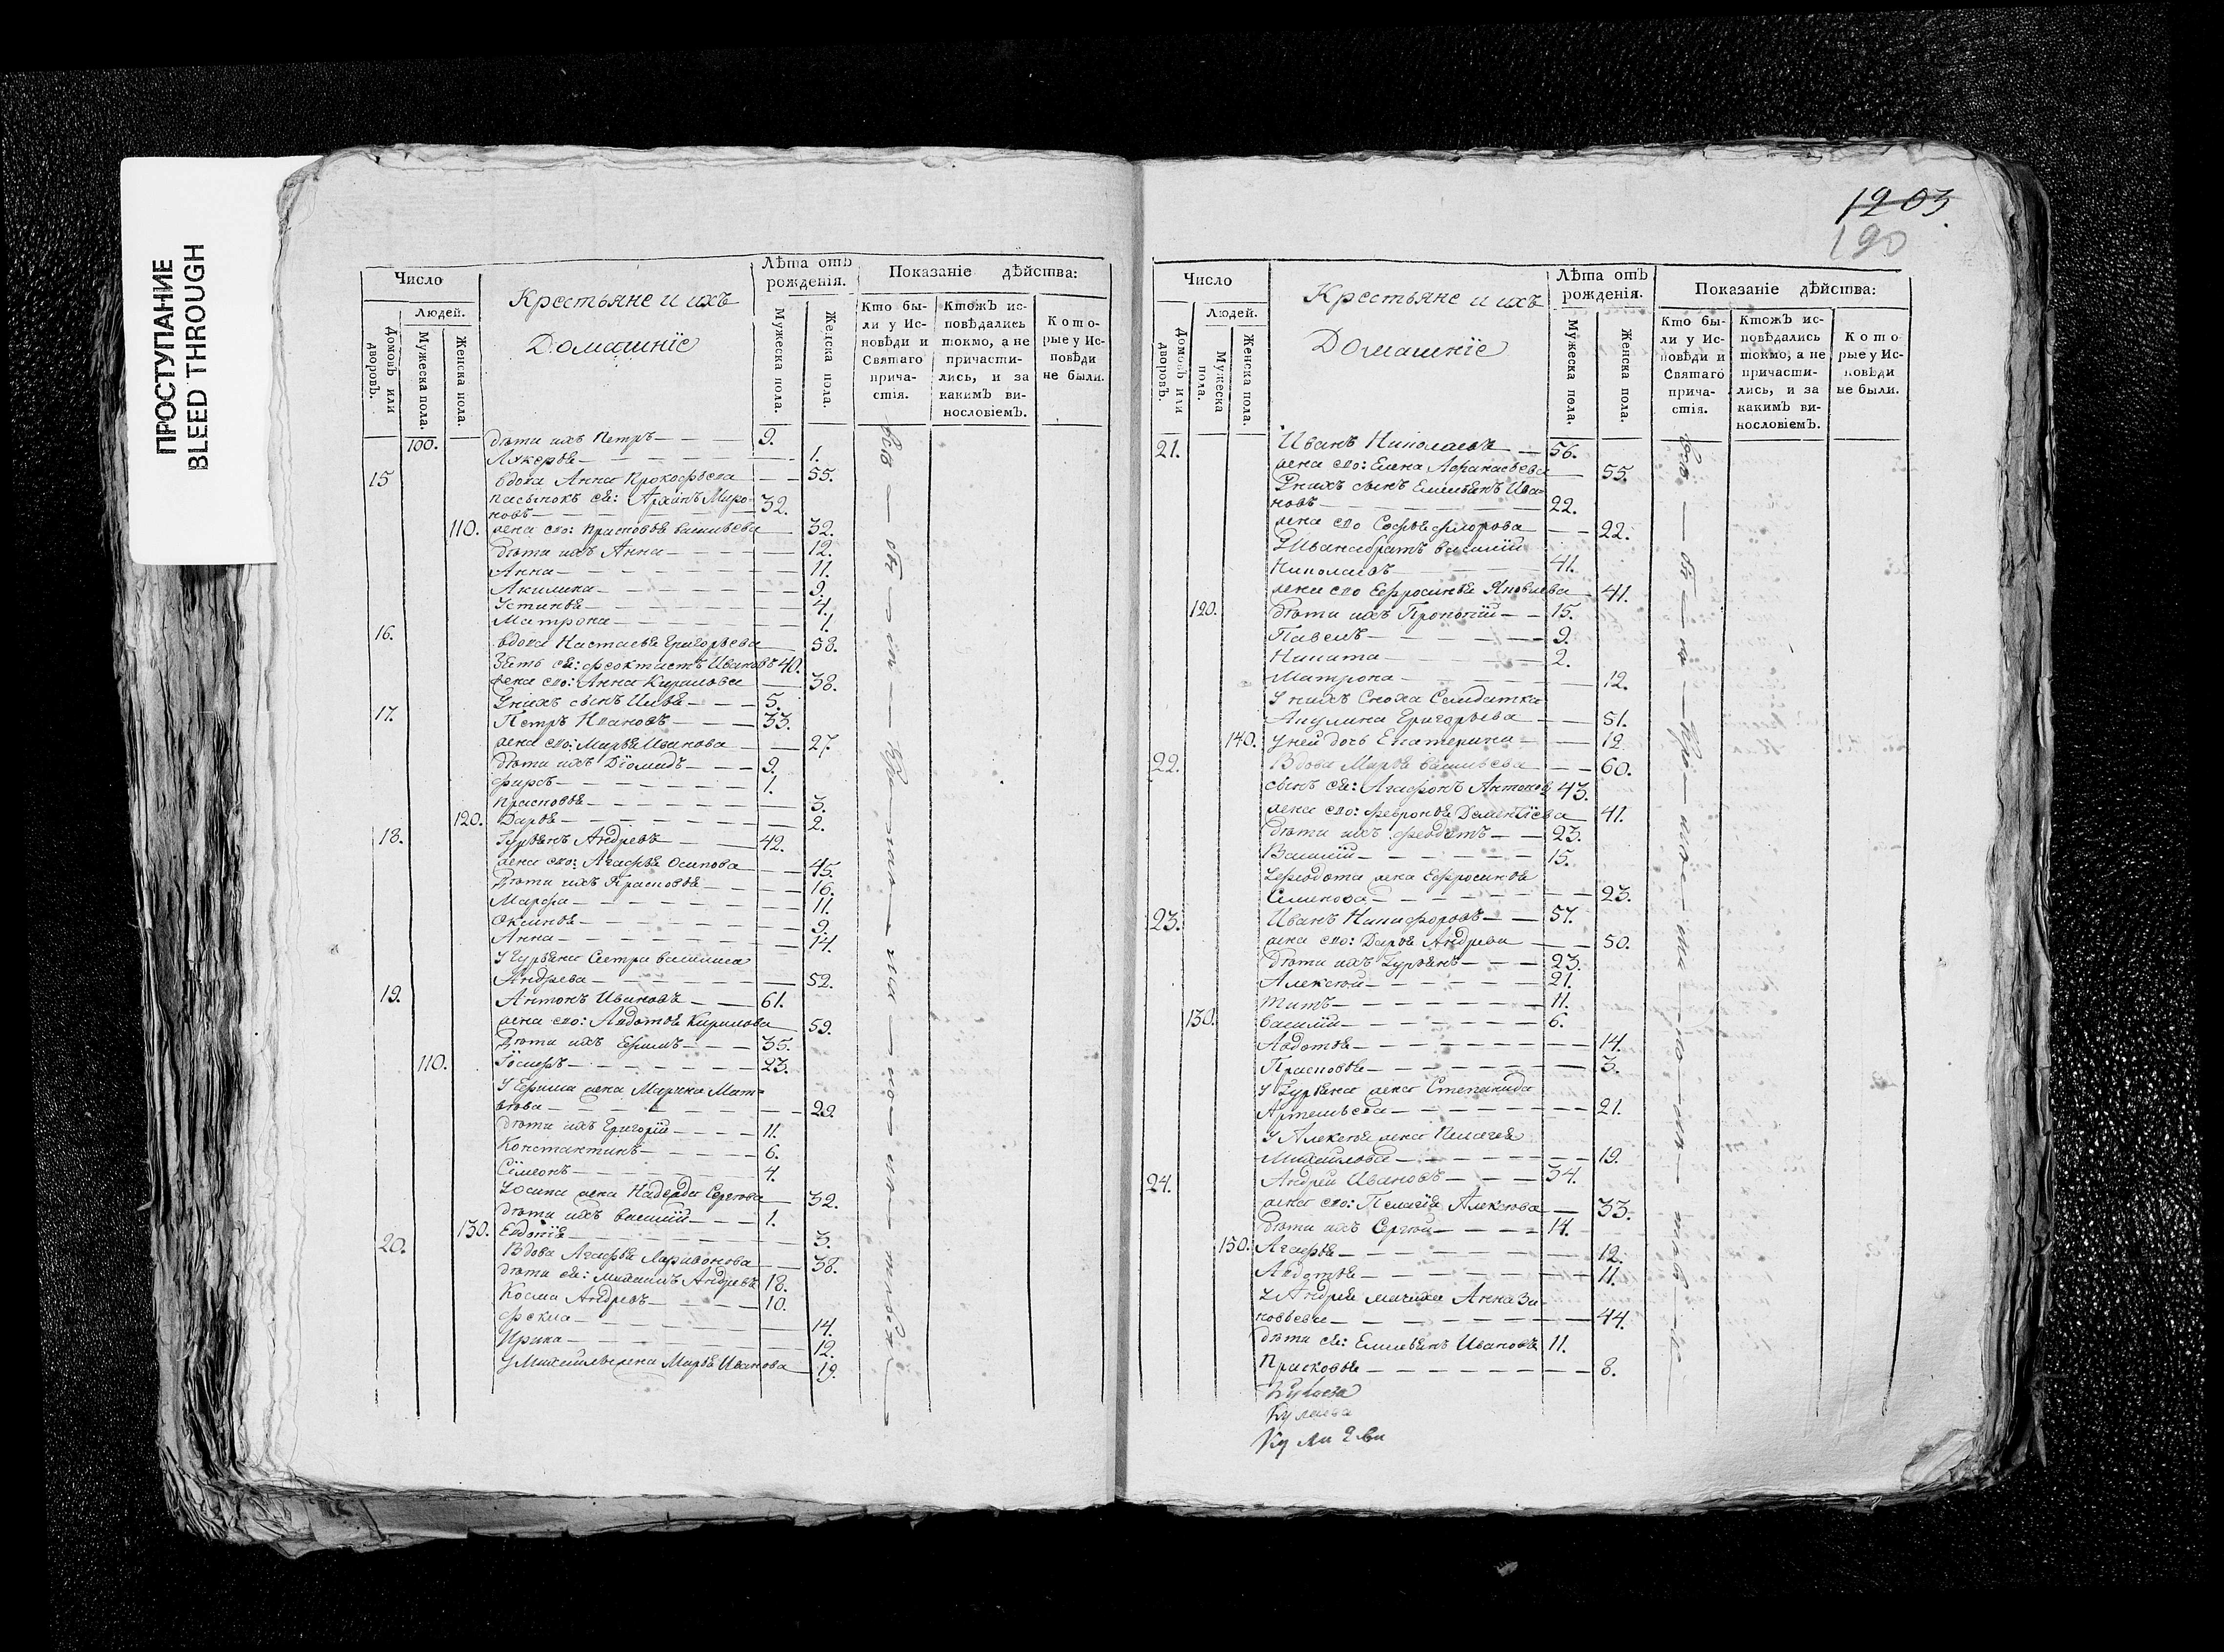 ПРОСТУПАНИЕ
BLEED THROUGH
Число
Людей.
Домовъ или дворовъ.
Мужеска пола.
Женска пола.
Крестьяне и ихъ
Домашніе
Лѣта отъ рожденія.
Мужеска пола.
Женска пола.
Показаніе дѣйства:
Кто бы-
ли у Ис-
повѣди и
Святаго
прича-
стія.
Ктожъ ис-
повѣдались
токмо, а не
причасти-
лись, и за
какимъ ви-
нословіемъ.
Кото-
рые у Ис-
повѣди
не были.
100. дѣти ихъ Петръ 9.
1.
15 вдова Анна Прокофьева 55.
пасынокъ ея: Миро-
новъ 32.
110. жена его: Прасковья Васильева 32.
дѣти ихъ Анна 12.
Анна 11.
Акилина 9.
Устинья 4.
Матрона 1.
16. вдова Настасья Григорьева 58.
Зять ея: Феоктистъ Ивановъ 40.
жена его: Анна Кирилова 38.
У нихъ сынъ 5.
17. Петръ Ивановъ 33.
жена его: Марья Иванова 27
дѣти ихъ Діомидъ 9.
Фирсъ 1.
Прасковья 3.
120. Дарья 2.
18. Гурьянъ Андреевъ 42.
жена его: Агафья Осипова 45.
Дѣти ихъ Прасковья 16.
Марфа 11.
Оксинья 9.
Анна 14.
У Гурьяна Сестра Василиса
Андреева 52.
19. Антонъ Ивановъ 61.
жена его: Авдотья Кирилова 59.
Дѣти ихъ Ефимъ 35.
110. Іосифъ 23.
У Ефима жена Марина Мат-
вѣева 29.
дѣти ихъ Григорій 11.
Константинъ 6.
Сѵмеонъ 4.
жена Надежда Сергѣева 32.
дѣти ихъ Василій 1.
130. Евдокія 3.
20. Вдова Агафья Ларивонова 38.
дѣти ея: Михаилъ Андреевъ 18.
Косма Андреевъ 10.
Фекла 14.
Ирина 12.
У Михаилы жена Марья Иванова 19.
1203
190
Число
Людей.
Домовъ или дворовъ.
Мужеска пола.
Женска пола.
Крестьяне и ихъ
Домашніе
Лѣта отъ рожденія.
Мужеска пола.
Женска пола.
Показаніе дѣйства:
Кто бы-
ли у Ис-
повѣди и
Святаго
прича-
стія.
Ктожъ ис-
повѣдались
токмо, а не
причасти-
лись, и за
какимъ ви-
нословіемъ.
Кото-
рые у Ис-
повѣди
не были.
21. Иванъ Николаевъ 56.
жена его: Елена Афанасьева 55.
У нихъ сынъ Емельянъ Ива-
новъ 22.
жена его Софья Флорова 22.
У Ивана братъ Василій
Николаевъ 41.
жена его Ефросинья Яковлева 41.
120. Дѣти ихъ Прокопій 15.
Павелъ 9.
Никита 2.
Матрона 12.
У нихъ Сноха Салдатка
Акулина Григорьева 51.
140. у ней дочь Екатерина 12
22. Вдова Марья Васильева 60.
сынъ ея: Агафонъ Антоновъ 43.
жена его: Февронья 41.
Дѣти ихъ Феодотъ 23.
Василій 15.
У Феодота жена Ефросинья
Семенова 23.
23. Иванъ Никифоровъ 57.
жена его: Дарья Андреева 50.
Дѣти ихъ Гурьянъ 23.
Алексѣй 21.
Титъ 11.
130. Василій 6.
Авдотья 14.
Прасковья 3.
У Гурьяна жена Степанида
Артемьева 21.
У Алексѣя жена Пелагея
Михайлова 19.
24. Андрей Ивановъ 34.
жена его: Пелагія Алексѣева 33.
Дѣти ихъ Сергѣй 14.
150. Агафья 12.
Авдотья 11.
У Андрея мачиха Анна Зи-
новьева 44.
дѣти ея: Емельянъ Ивановъ 11.
Прасковья 8.